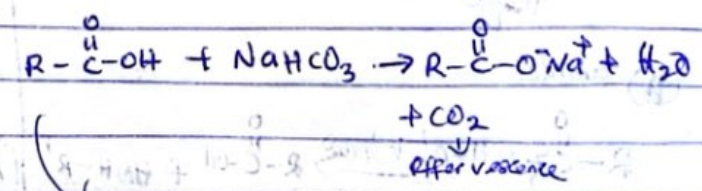 O
R-C-OH + NaHCO3 → R-C-O⁻Na⁺ + H2O
+ CO2
effervescence